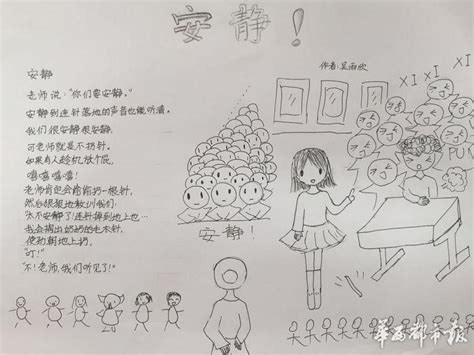 安静！
作者:吴雨欣
安静
老师说:"你们要安静。"
安静到连针落地的声音也能听清。
我们很安静很安静，
可老师就是不扔针。
如果有人趁机放个屁，
嘻嘻嘻嘻！
老师肯定会偷偷扔一根针，
然后狠狠地教训我们：
太不安静了！连针掉到地上也…
我会掏出奶奶的毛木针，
使劲朝地上扔，
"叮！"
"不！老师，我们听见了！"
安静！
XI
XI
XI
PU
华西都市报